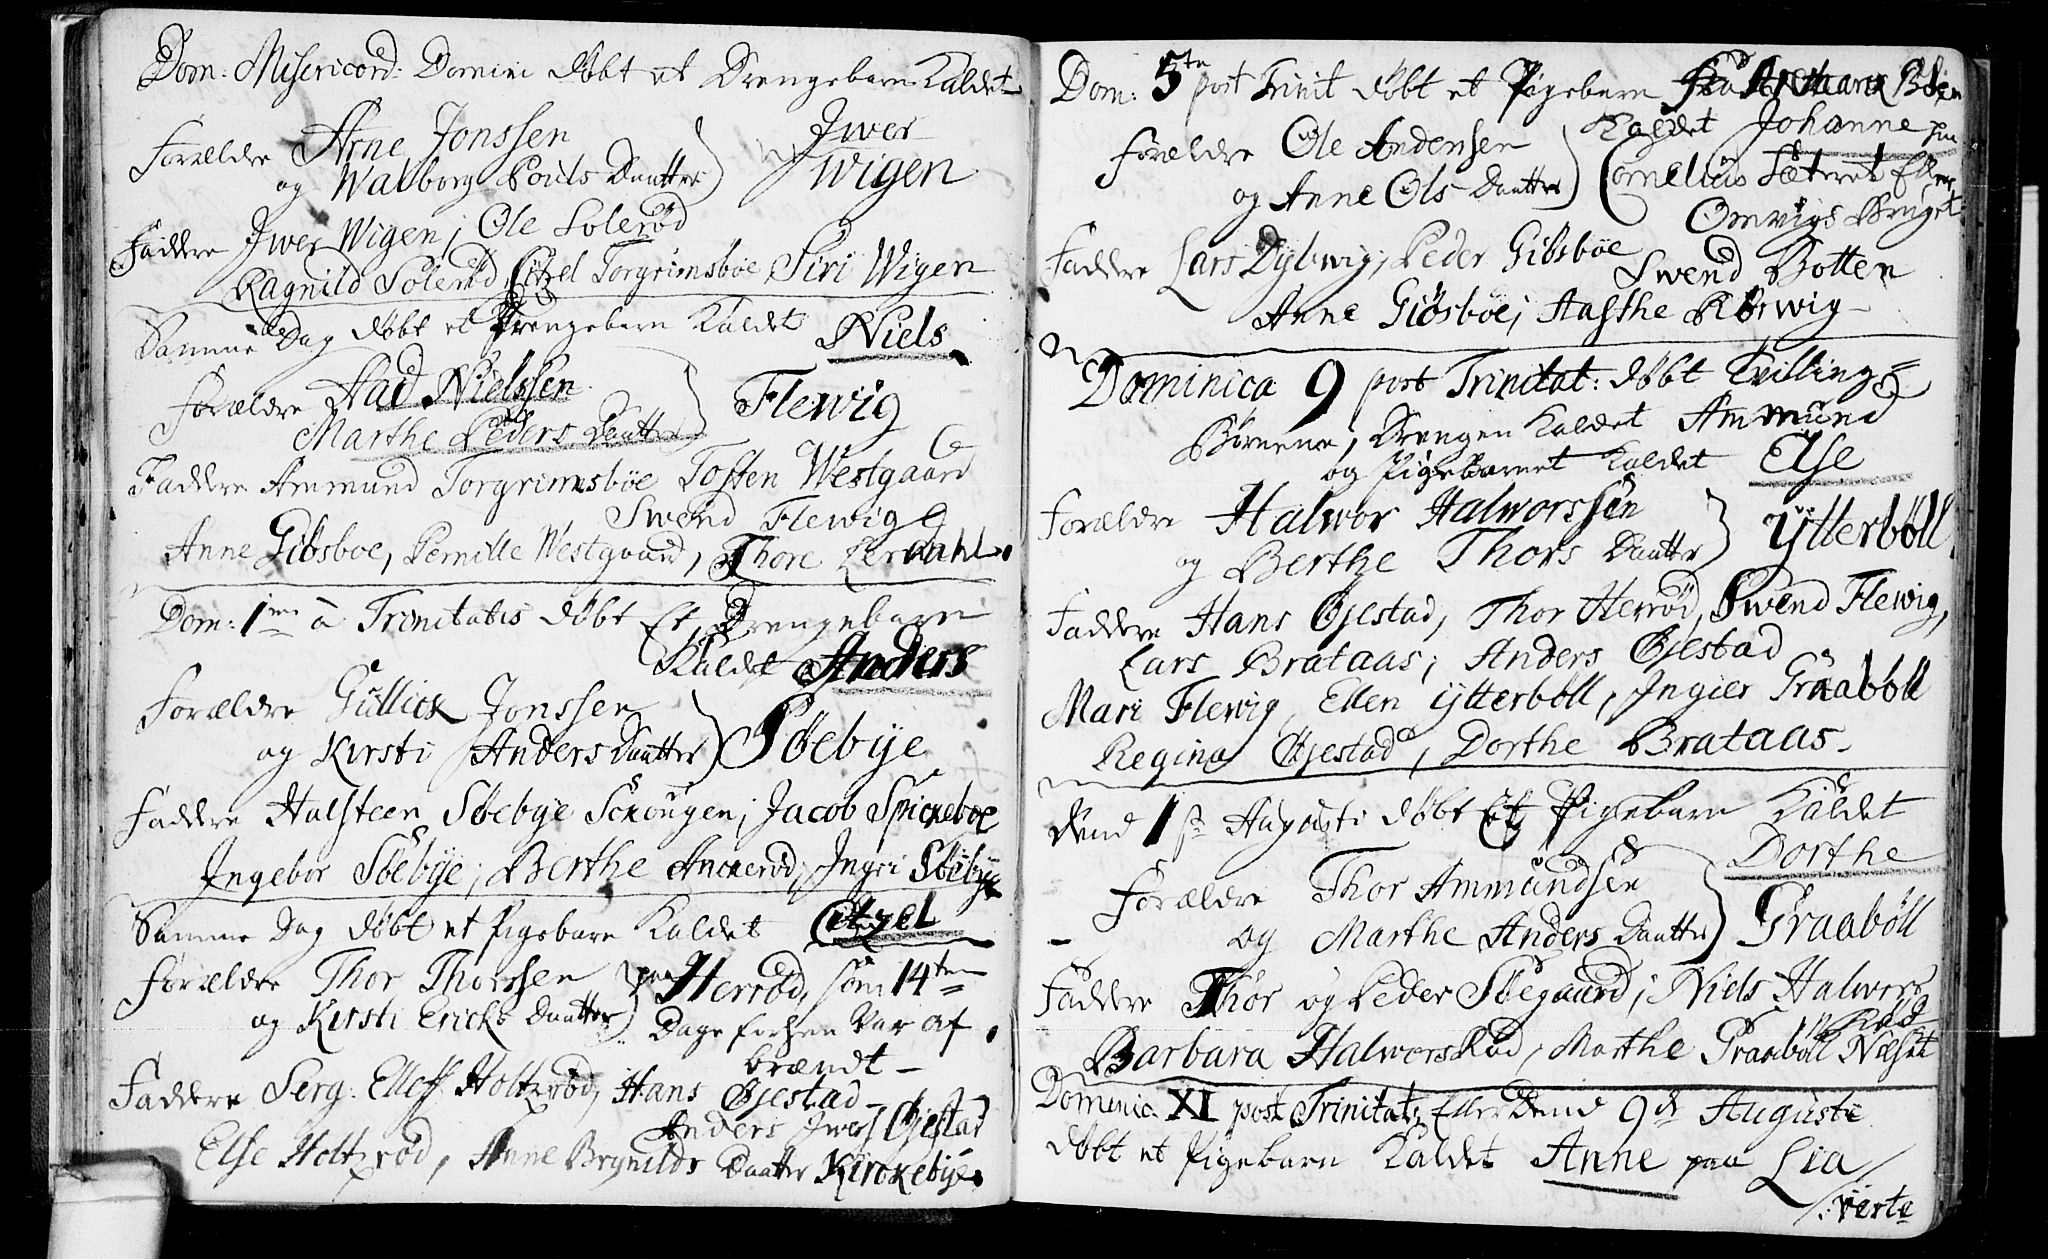 Dom: Misericord: Domini döbt et Drengebarn Kaldet
Forældre Arne Jonssen Jwer
og Walborg Pouls Daatter Wigen
Faddere Jwer Wigen; Ole Solerød
Ragnild Solerød, Citzel Torgrimsböe Siri Wigen
Samme Dag döbt et Drengebarn Kaldet Niels
Forældre Aad Nielssen Flewig
Marthe Peders Daatter
Faddere Ammund Torgrimsböe Tosten Westgaard
Swend Flewig
Anne Giösboe, Pernille Westgaard, Thore
Dom: 1me à Trinitatis döbt Et Drengebarn
Kaldet Anders
Forældre Gullick Jonssen
og Kirsti Anders Daatter Söebye
Faddere Halsteen Söebye Schougen; Jacob Spickeboe
Ingebor Söebye; Berthe Anckerød; Jngri Söebye
Samme Dag döbt et Pigebarn Kaldet Citzel
Forældre Thor Thorssen paa Herröd, som 14ten
og Kirsti Erichs Daatter Dage forhen var af
brændt
Faddere Serg: Elleff Holtzröd, Hans Ojestad
Anders Jwers Ojestad
Else Holtzröd, Anne Brynilds Daatter Kirckebye
Dom: 5te post Trinit döbt et Pigebarn
Kaldet Johanne paa
Forældre Ole Andensen
og Anne Ols Daatter Cornelius Sæteret Eller
Omvigs Bruget
Faddere Lars Dybwig, Peder Giösböe
Swend Botten
Anne Giösböe; Aasthe Rörwig
Dominica 9 post Trinitat: döbt Tvilling
Börnene, Drengen Kaldet Ammund
og Pigebarnet Kaldet Else
Forældre Halwor Halworssen Ytterböll
og Berthe Thors Daatter
Faddere Hans Ojestad, Thor Herröd, Swend Flewig,
Lars Brataas; Anders Ojestad
Mari Flewig, Ellen Ytterböll, Jngier Graaböll
Regina Ojestad, Dorthe Brataas
Dend 1ste Augusti döbt Et Pigebarn Kaldet
Dorthe
Forældre Thor Ammundsen
og Marthe Anders Daatter Graaböll
Faddere Thor og Peder Söegaard; Niels Halwors
Barbara Halwors Röd, Marthe Graaböll
Dominic: XI post Trinitatis Eller Dend 9de Augusti
döbt et Pigebarn Kaldet Anne paa Lia
verte